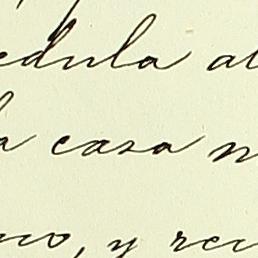 edula al
a casa n
no, y rec